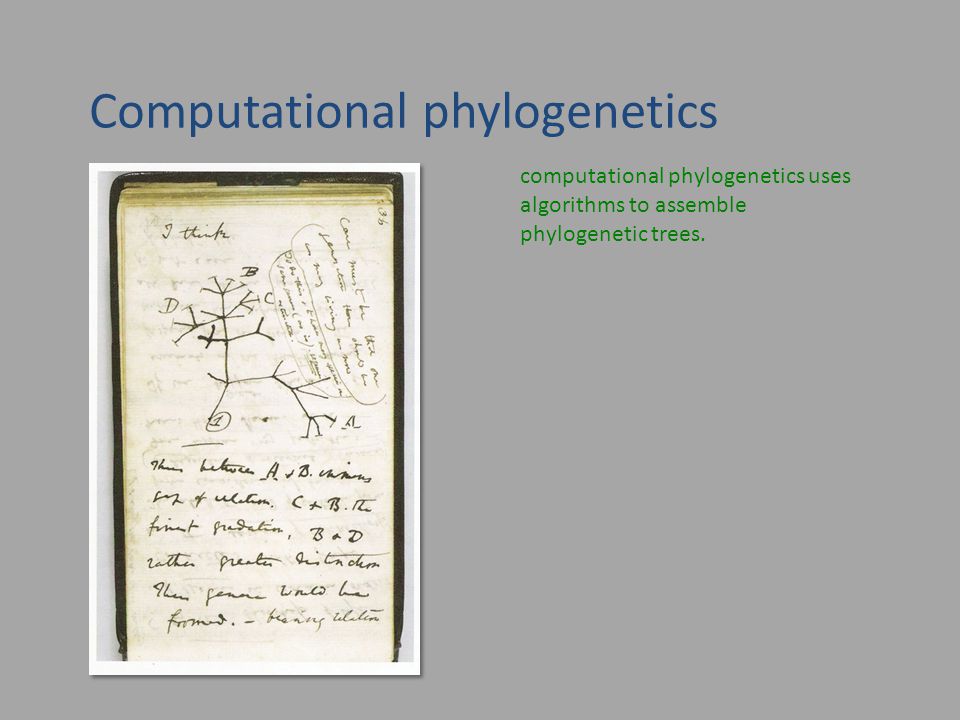 Computational phylogenetics
computational phylogenetics uses
algorithms to assemble
phylogenetic trees.
36
I think
B
D
C
A
1
Case must be that one
generation then should be
as many living as now
To do this & to have many species in
same genus (as is) requires
extinction.
Thus between A & B. immens
gap of relation. C & B. the
finest gradation, B & D
rather greater distinction
Thus genera would be
formed. — bearing relation